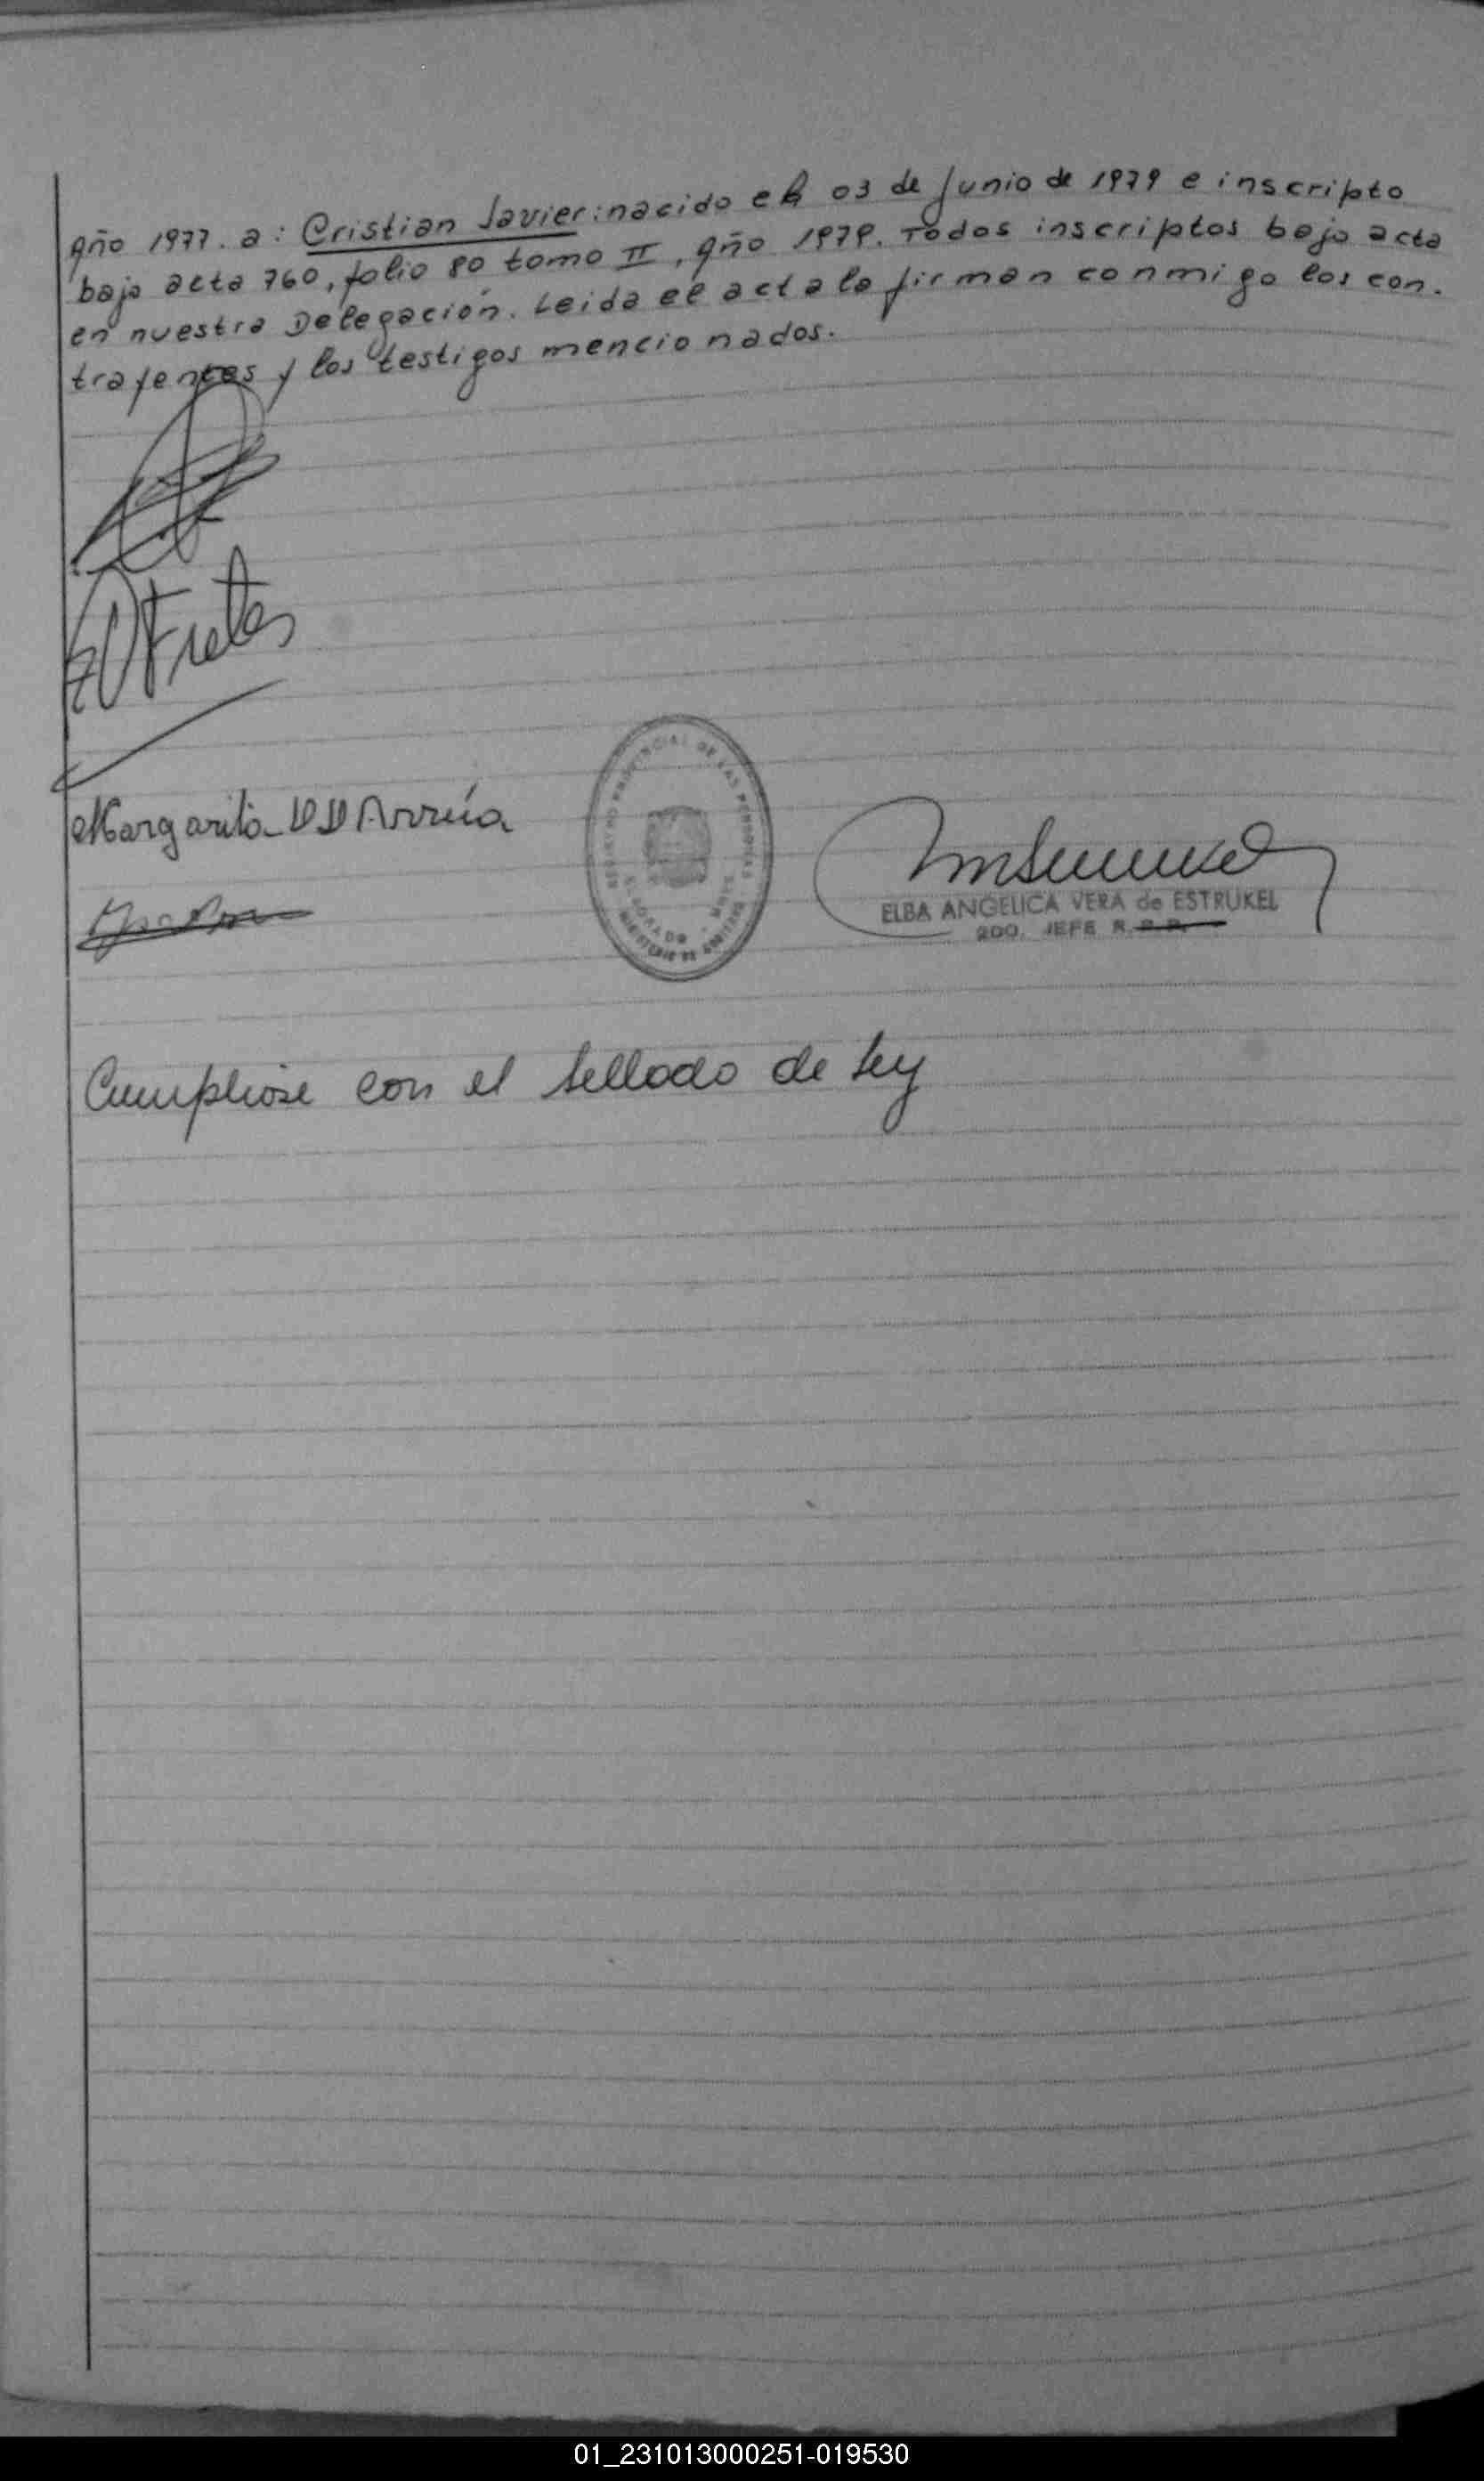 año 1977. a: Cristian Javier: nacido el 03 de Junio de 1979 e inscripto
bajo acta 760, folio 80 tomo II, año 1979. Todos inscriptos bajo acta
en nuestra Delegación. Leida el acta la firman conmigo los con.
trayentes y los testigos mencionados.
Fretes
Margarita D D Arrúa
REGISTRO PROVINCIAL DE LAS PERSONAS
ELDORADO - MNES
MINISTERIO DE GOBIERNO
ELBA ANGELICA VERA de ESTRUKEL
2DO. JEFE R.P.P.
Cumpliose con el sellado de ley
01_231013000251-019530